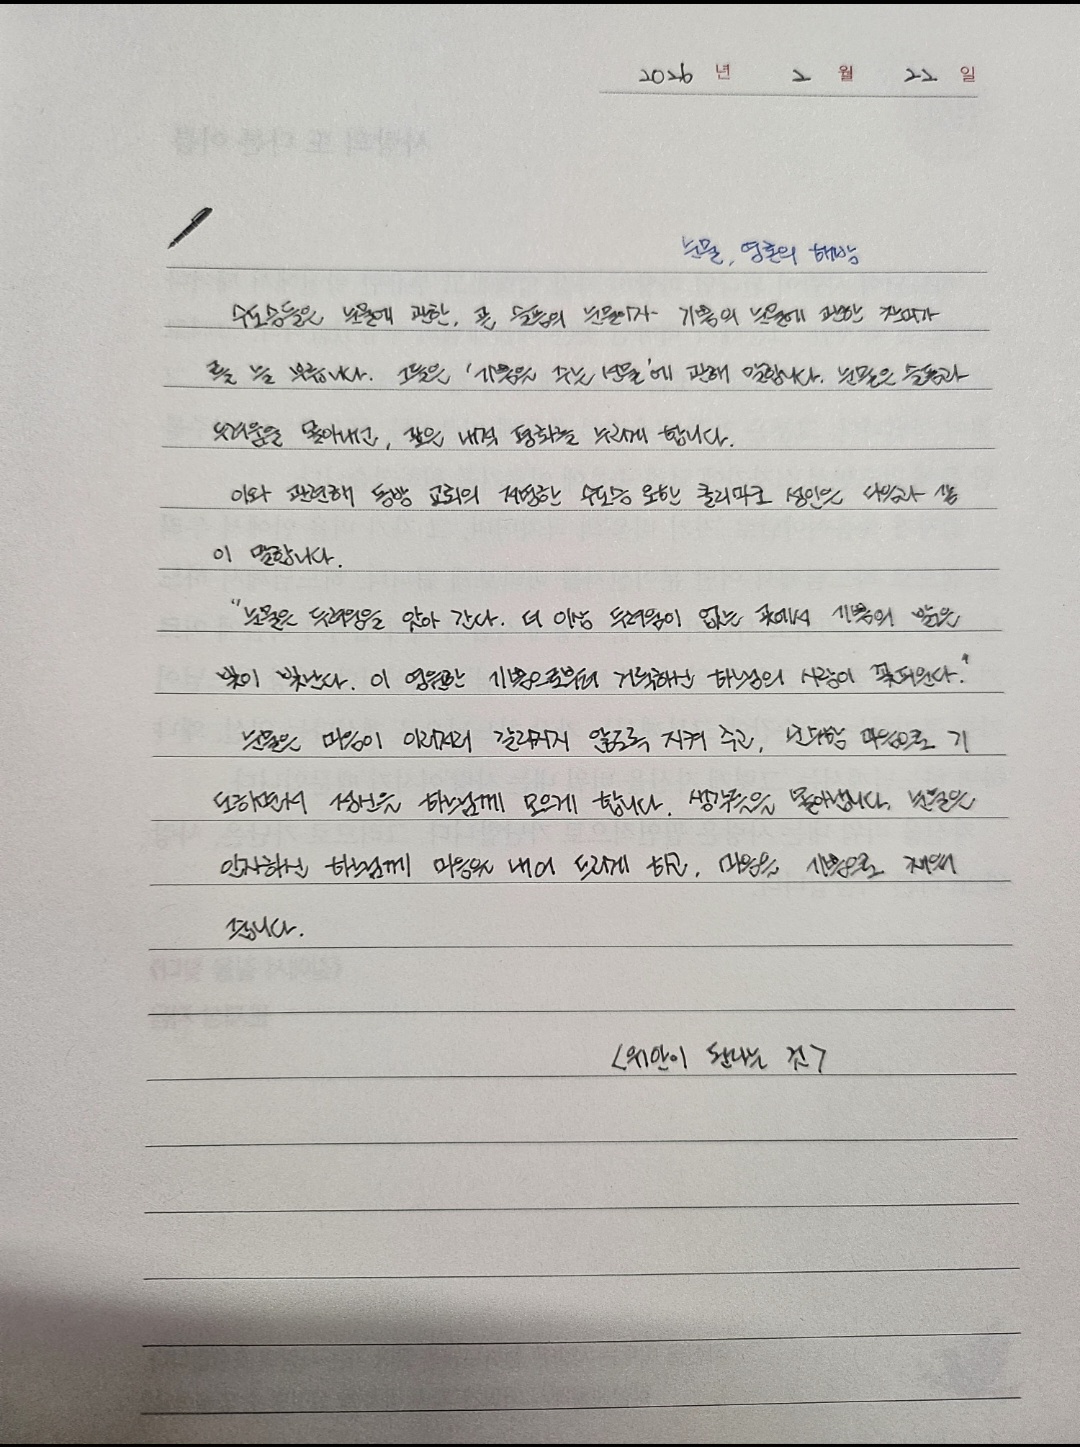 2026 년 2 월 22 일
눈물, 영혼의 해방
수도승들은 눈물에 관한, 곧 슬픔의 눈물이자 기쁨의 눈물에 관한 찬미가
를 늘 부릅니다. 그들은 '기쁨을 주는 눈물'에 관해 말합니다. 눈물은 슬픔과
두려움을 몰아내고, 깊은 내적 평화를 누리게 합니다.
이와 관련해 동방 교회의 저명한 수도승 요한 클리마코 성인은 다음과 같
이 말합니다.
"눈물은 두려움을 앗아 간다. 더 이상 두려움이 없는 곳에서 기쁨의 밝은
빛이 빛난다. 이 영원한 기쁨으로부터 거룩하신 하느님의 사랑이 꽃피운다."
눈물은 마음이 이리저리 갈라지지 않도록 지켜 주고, 단단한 마음으로 기
도하면서 정신을 하느님께 모으게 합니다. 생각들을 몰아냅니다. 눈물은
인자하신 하느님께 마음을 내어 드리게 하고, 마음을 기쁨으로 채워
줍니다.
<위안이 된다는 것>